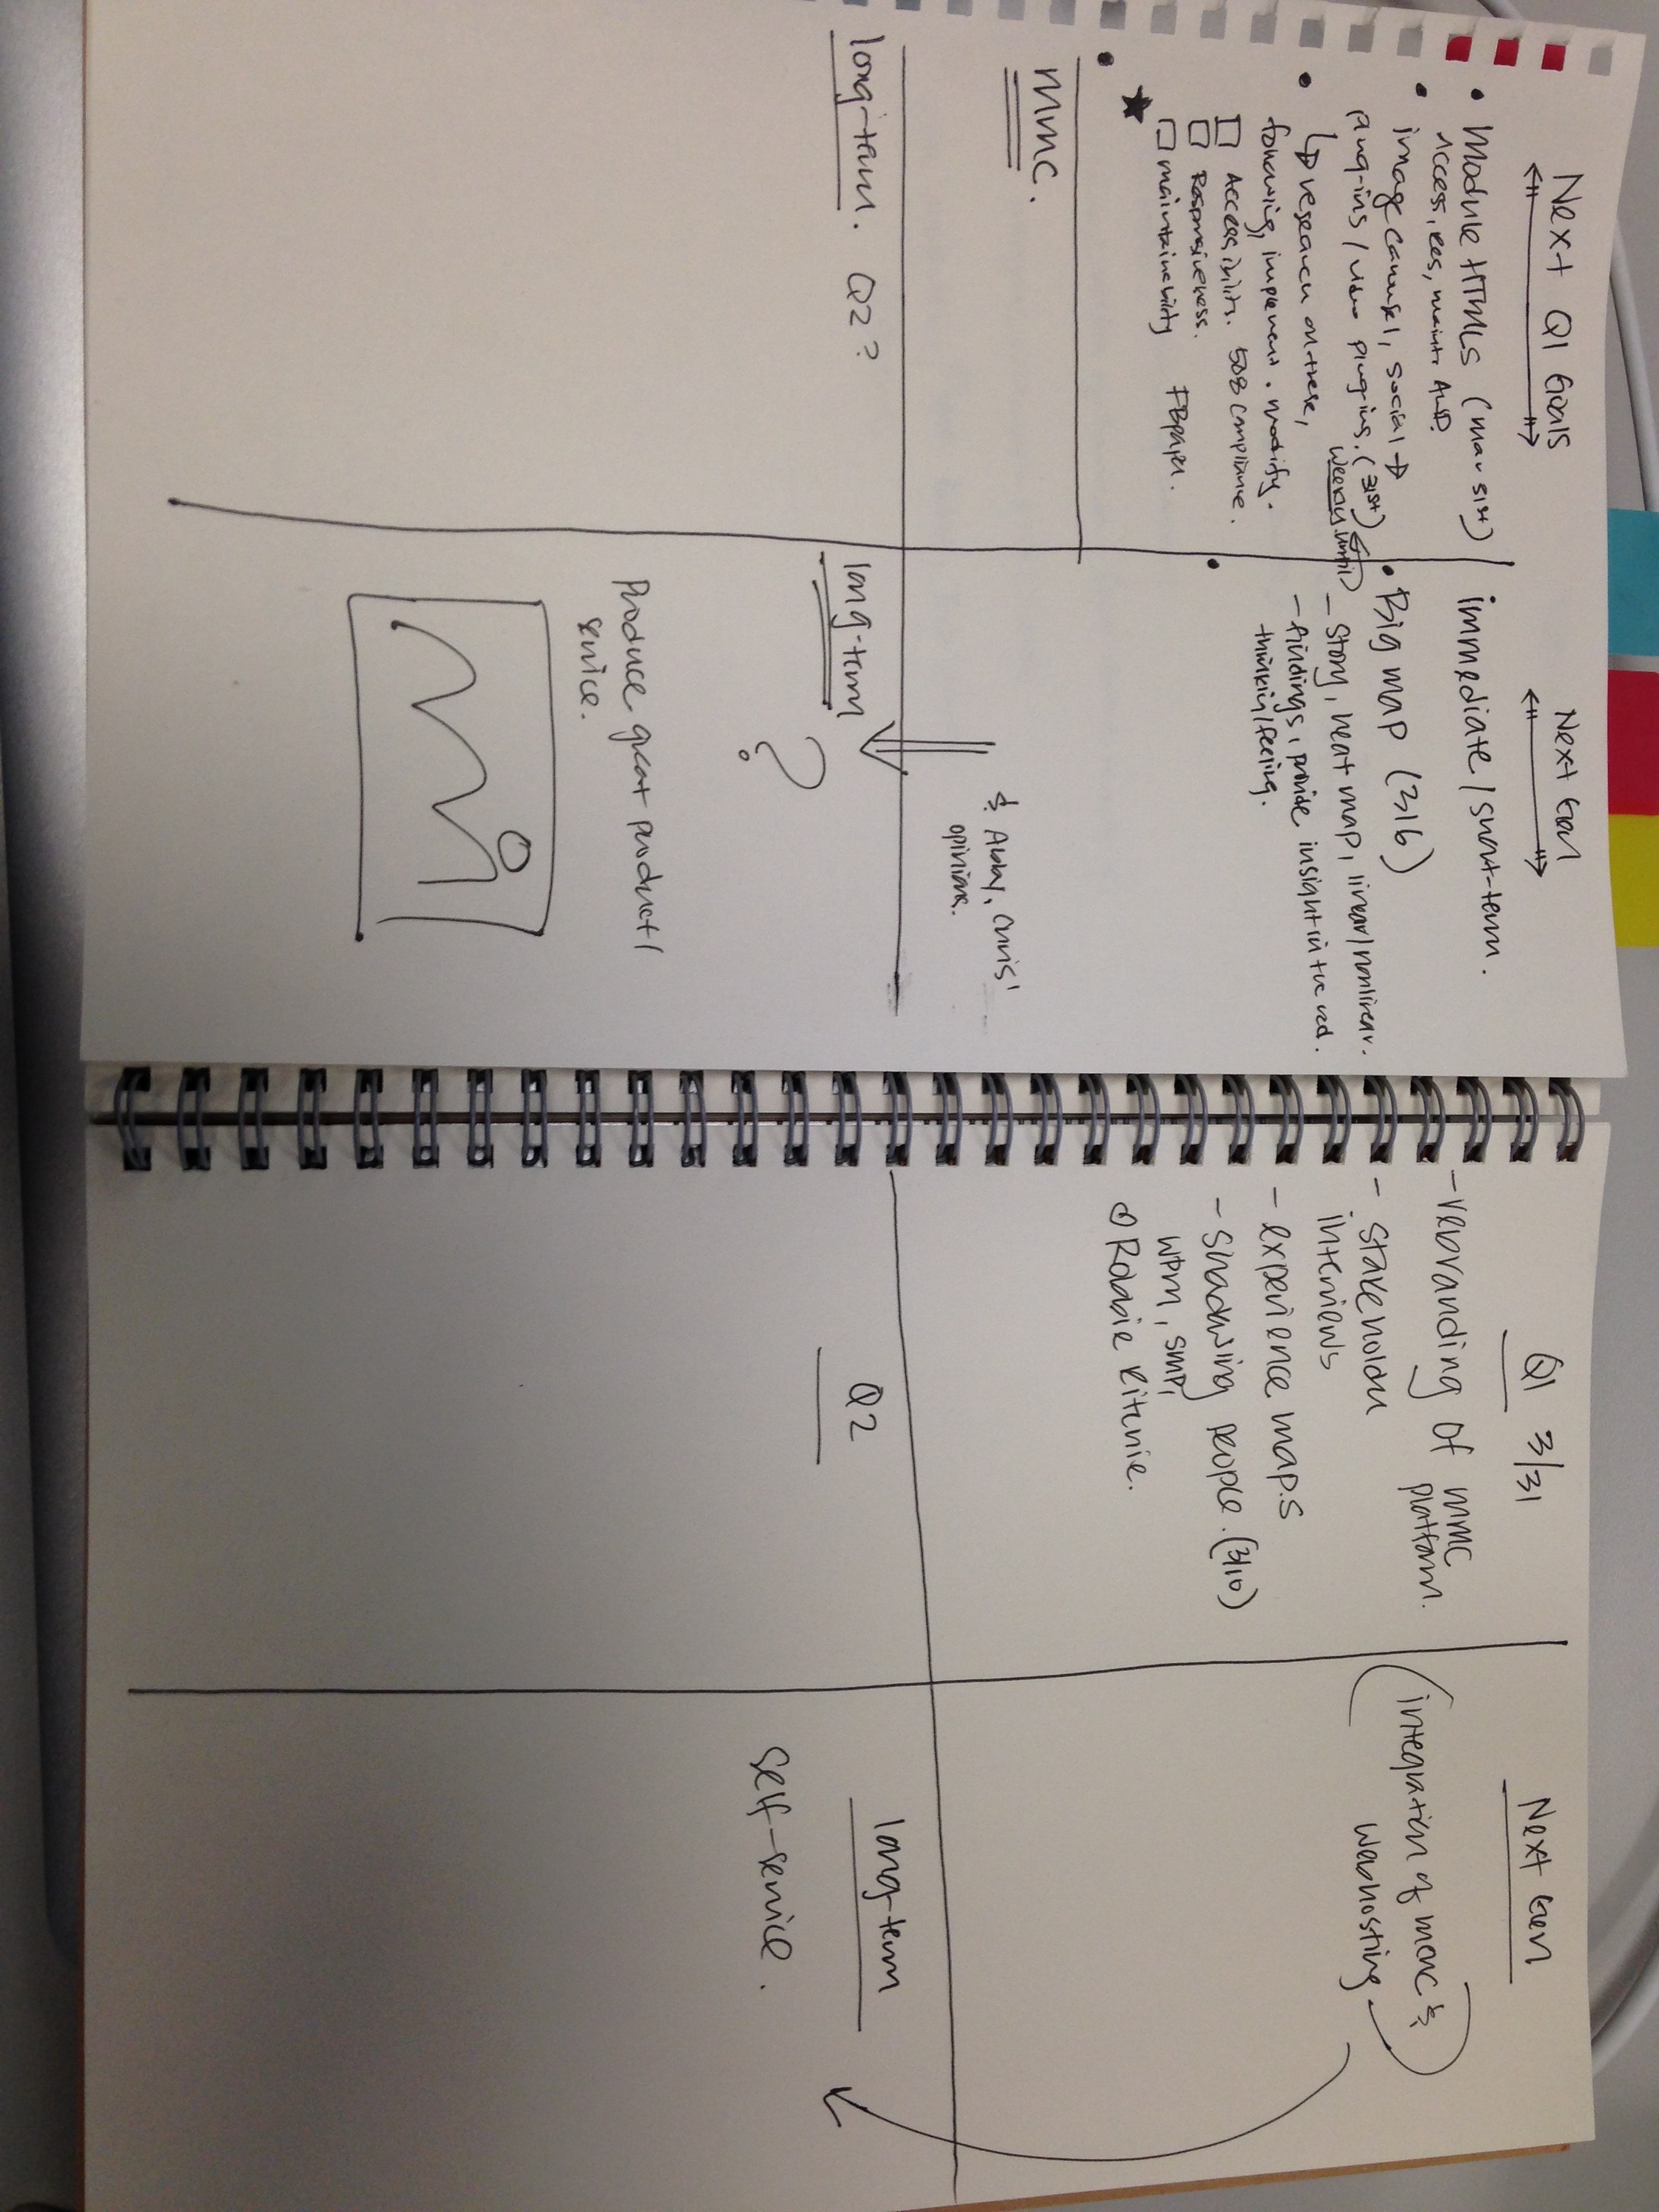 Next Q1 Goals
• Module HTMLs (Mar 31st)
Access, res, maint. AWD.
• image carousel, social →
plug-ins / video plugins. (31st)
weekly until
• ↳ research on these,
following, implement. modify.
□ Accessibility. 508 compliance.
□ Responsiveness.
★ □ maintainability FB paper.
•
MMC.
long-term. Q2?
Next Gen
immediate / short-term.
• Big map (3/6)
- story, heat map, linear/nonlinear.
- findings, provide insight in the end.
thinking/feeling.
•
& Abby, Chris'
opinions.
long-term
?
Produce great product/
service.
Q1 3/31
- rebranding of MMC
platform.
- stakeholder
interviews
- experience maps
- shadowing people. (3/10)
WPM, SMP,
Robbie Ritchie.
Q2
Next Gen
(integration of MMC &
webhosting)
long-term
self-service.